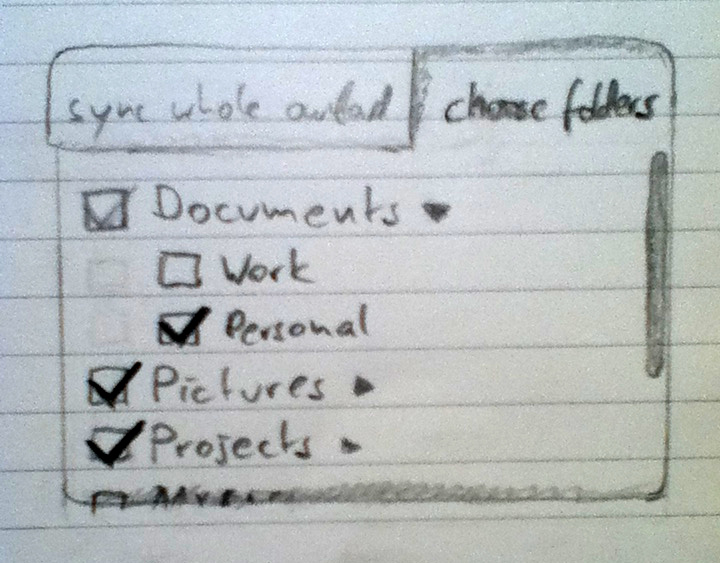 sync whole choose folders
Documents
Work
Personal
Pictures
Projects